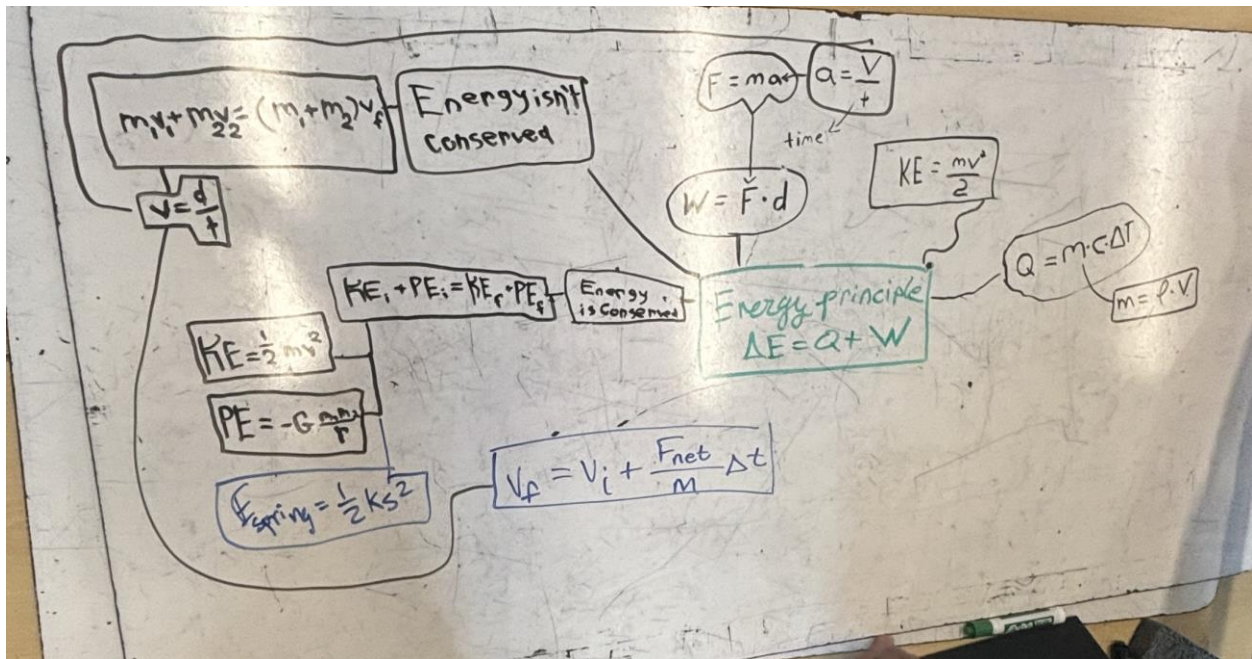 m₁v₁+m₂v₂=(m₁+m₂)v_f
Energy isn't
conserved
F = ma
a = V/t
time
v = d/t
W = F·d
KE = mv²/2
Q = m·c·ΔT
m = ρ·V
KE_i + PE_i = KE_f + PE_f
Energy
is conserved
Energy principle
ΔE = Q + W
KE = ½mv²
PE = -G m₁m₂/r
E_spring = ½ks²
V_f = V_i + F_net/m Δt